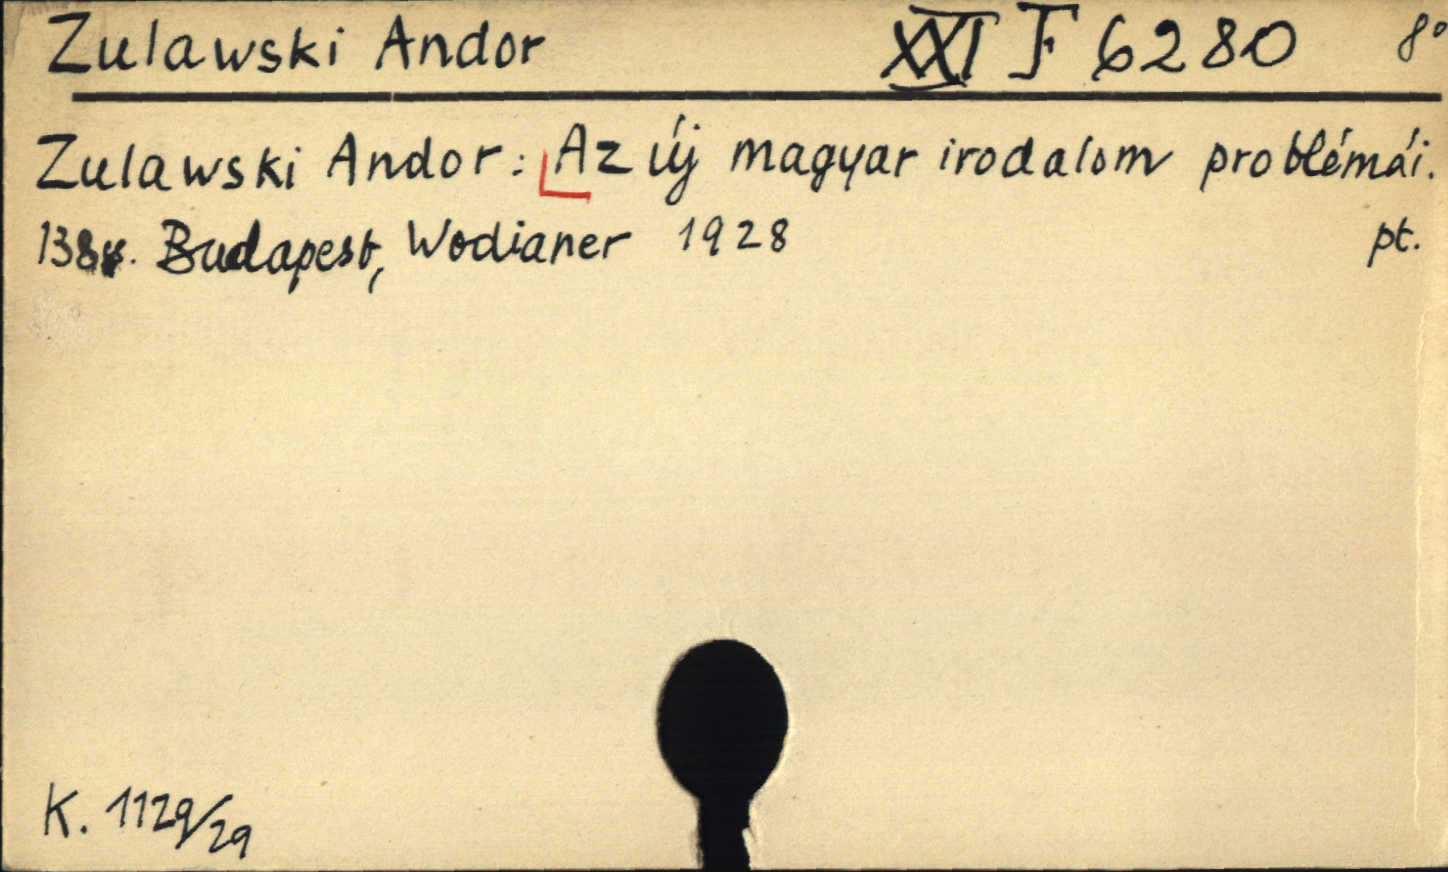 Zulawski Andor XXI F 6280 8°
Zulawski Andor: Az új magyar irodalom problémái.
138 Budapest, Wodianer 1928 pt.
K. 1129/29